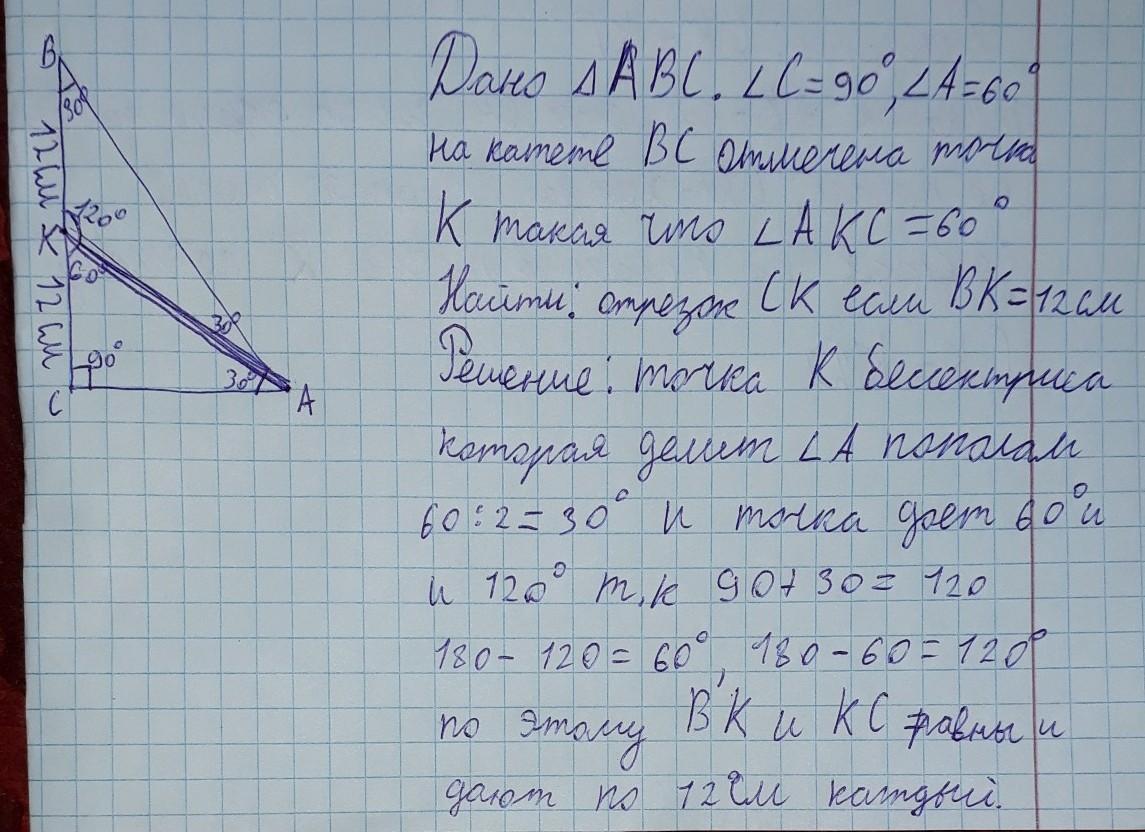 B
30°
12 см
120°
K
60°
12 см
30°
90°
30°
C
A
Дано ΔABC. ∠C=90°, ∠A=60°
на катете BC отмечена точка
K такая что ∠AKC=60°
Найти: отрезок CK если BK=12см
Решение: точка K бессектриса
которая делит ∠A пополам
60:2=30° и точка дает 60° и
и 120° т.к 90+30=120
180-120=60°, 180-60=120°
по этому BK и KC равны и
дают по 12см каждый.